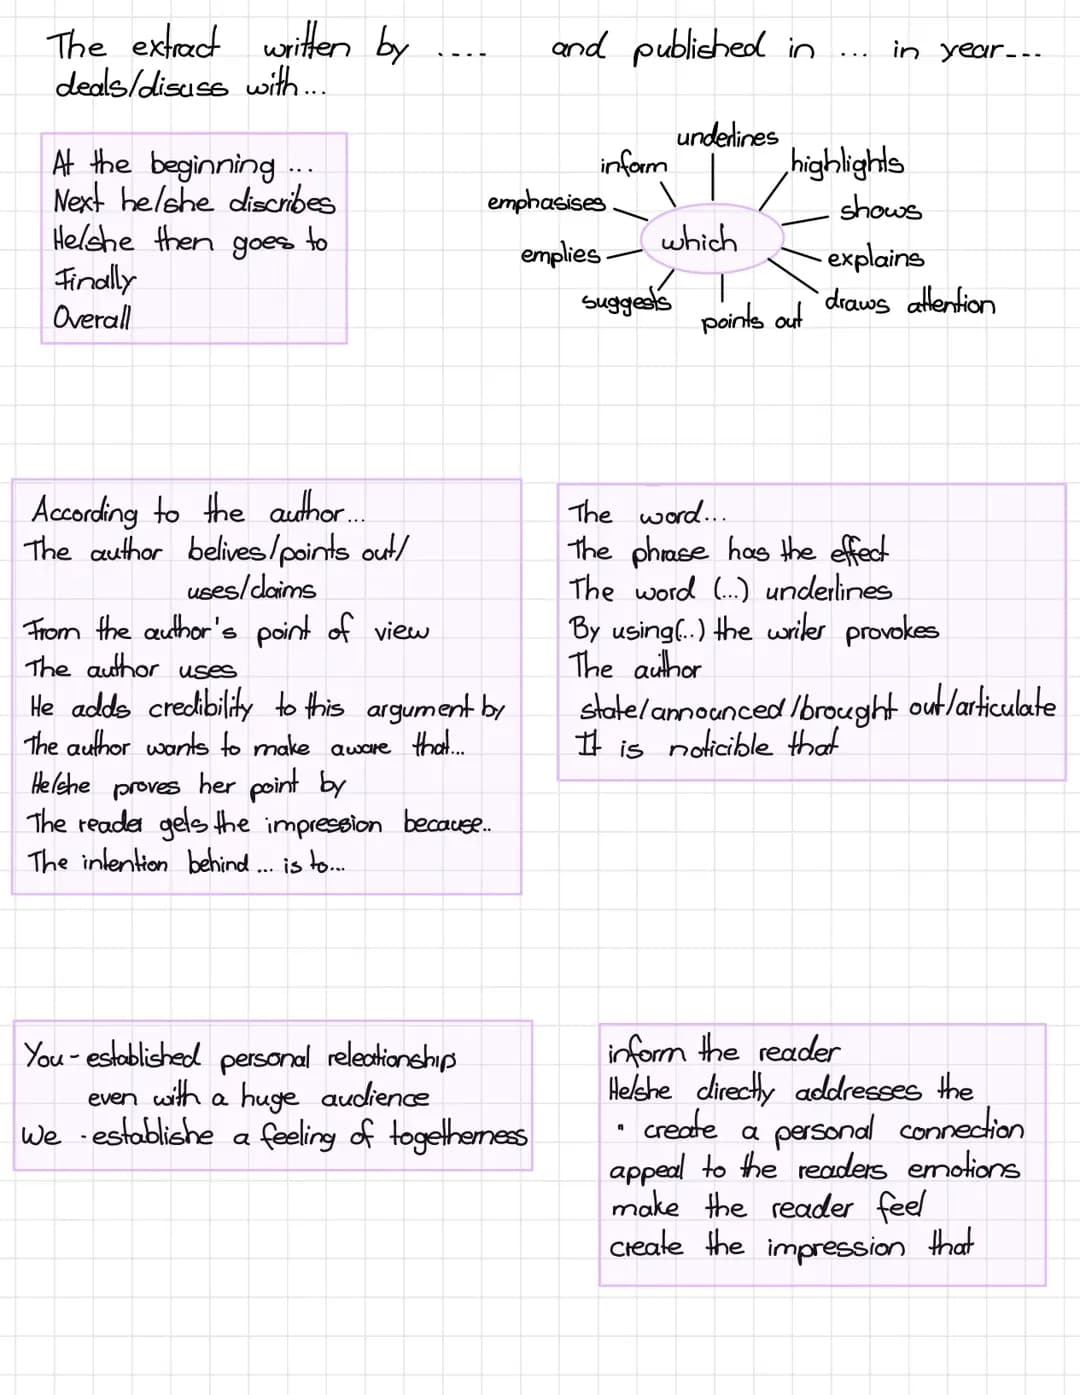 The extract written by .... and published in ... in year---
deals/disuss with...
At the beginning ...
Next he/she discribes
He/she then goes to
Finally
Overall
underlines
inform
highlights
emphasises
shows
which
emplies
explains
suggests
draws attention
points out
According to the author...
The author belives/points out/
uses/claims
From the author's point of view
The author uses
He adds credibility to this argument by
The author wants to make aware that...
He/she proves her point by
The reader gets the impression because..
The intention behind ... is to...
The word...
The phrase has the effect
The word (...) underlines
By using(..) the writer provokes
The author
state/announced/brought out/articulate
It is noticible that
You - established personal releationship
even with a huge audience
We - establishe a feeling of togetherness
inform the reader
He/she directly addresses the
" create a personal connection
appeal to the readers emotions
make the reader feel
create the impression that